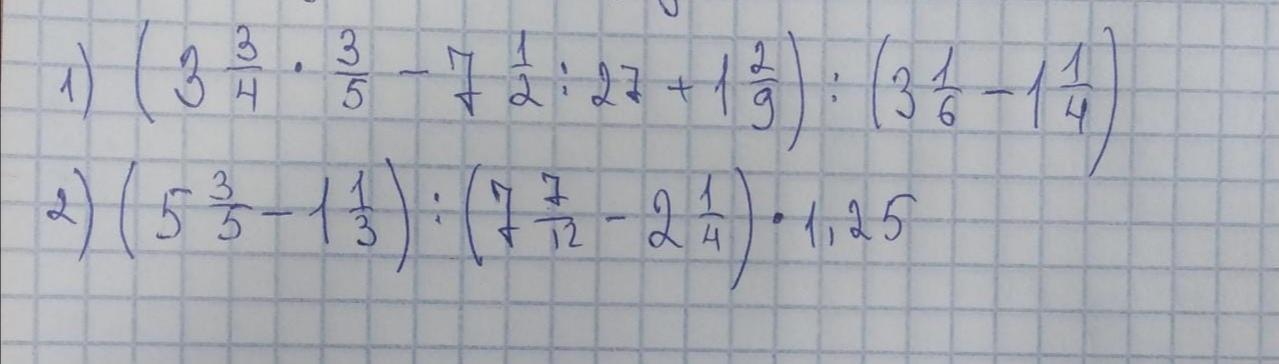 1) (3 3/4 · 3/5 − 7 1/2 : 27 + 1 2/9) : (3 1/6 − 1 1/4)
2) (5 3/5 − 1 1/3) : (7 7/12 − 2 1/4) · 1,25